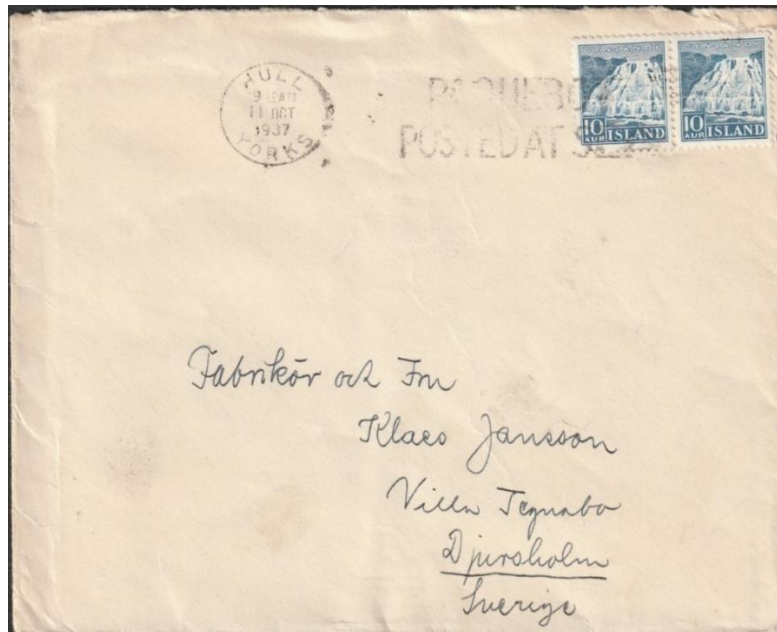 HULL
11 OCT
1937
YORKS
PAQUEBOT
POSTED AT SEA
DYNJANDI
10
AUR ISLAND
DYNJANDI
10
AUR ISLAND
Fabrikör och Fru
Klaes Jansson
Villa Tegnabo
Djursholm
Sverige